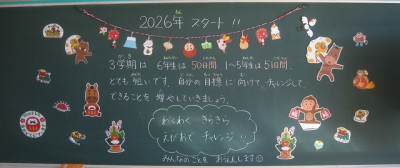 2026年 スタート!!
3学期は 6年生は50日間 1〜5年生は51日間。
とても短いです。自分の目標に向けてチャレンジして
できることを増やしていきましょう。
わくわく きらきら
えがおで チャレンジ!!
みんなのことを お応えします☺